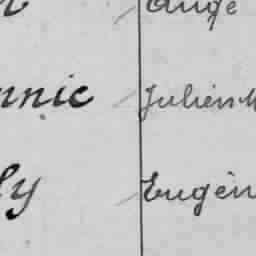 Ange
nnic Julien M
ly Eugèn